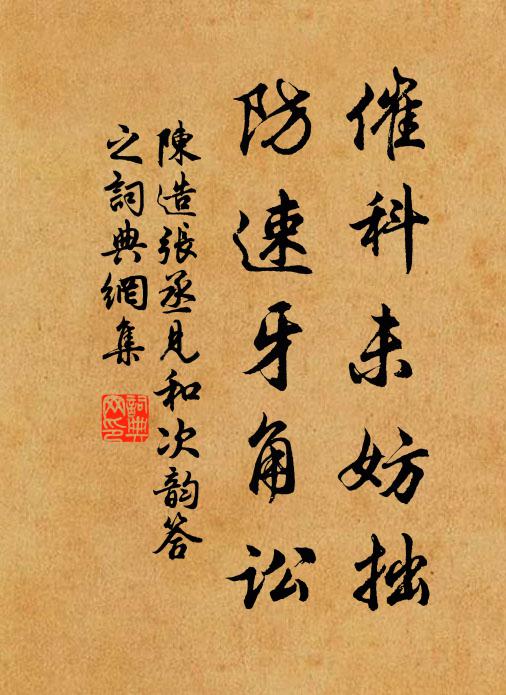 催科未妨拙
防速牙角訟
陳造張丞見和次韵答
之詞典網集
詞典網印